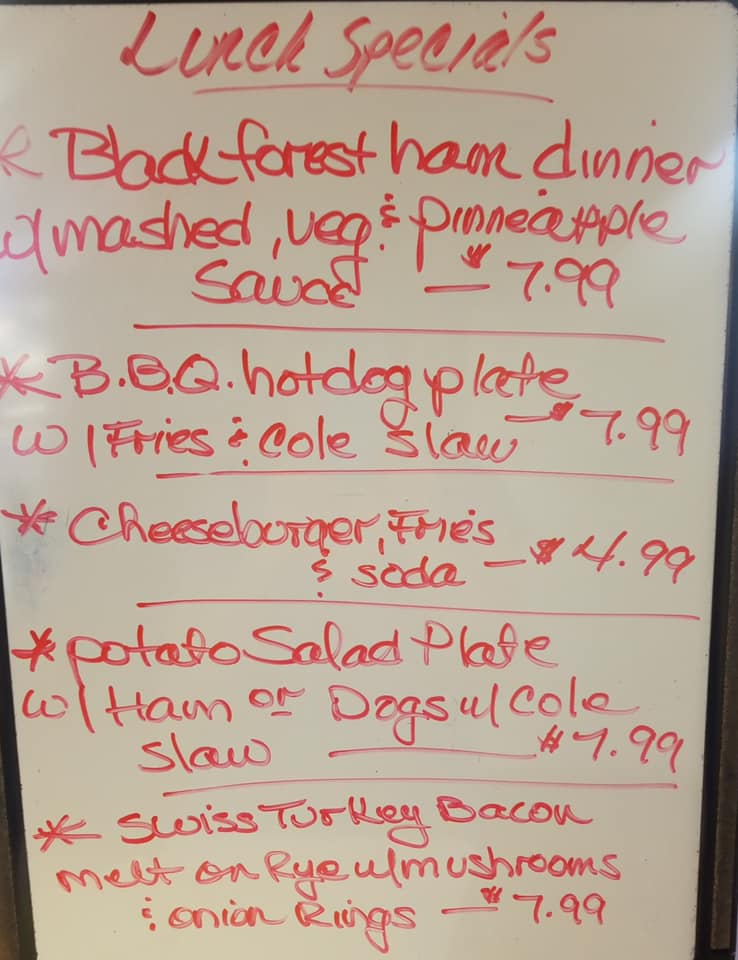 Lunch Specials
* Black forest ham dinner
w/ mashed, veg & pinneapple
Sauce — $7.99
* B.B.Q. hotdog plate
w/ Fries & Cole Slaw — $7.99
* Cheeseburger, Fries
& soda — $4.99
* potato Salad Plate
w/ Ham or Dogs w/ Cole
Slaw — $7.99
* Swiss Turkey Bacon
melt on Rye w/ mushrooms
& onion Rings — $7.99